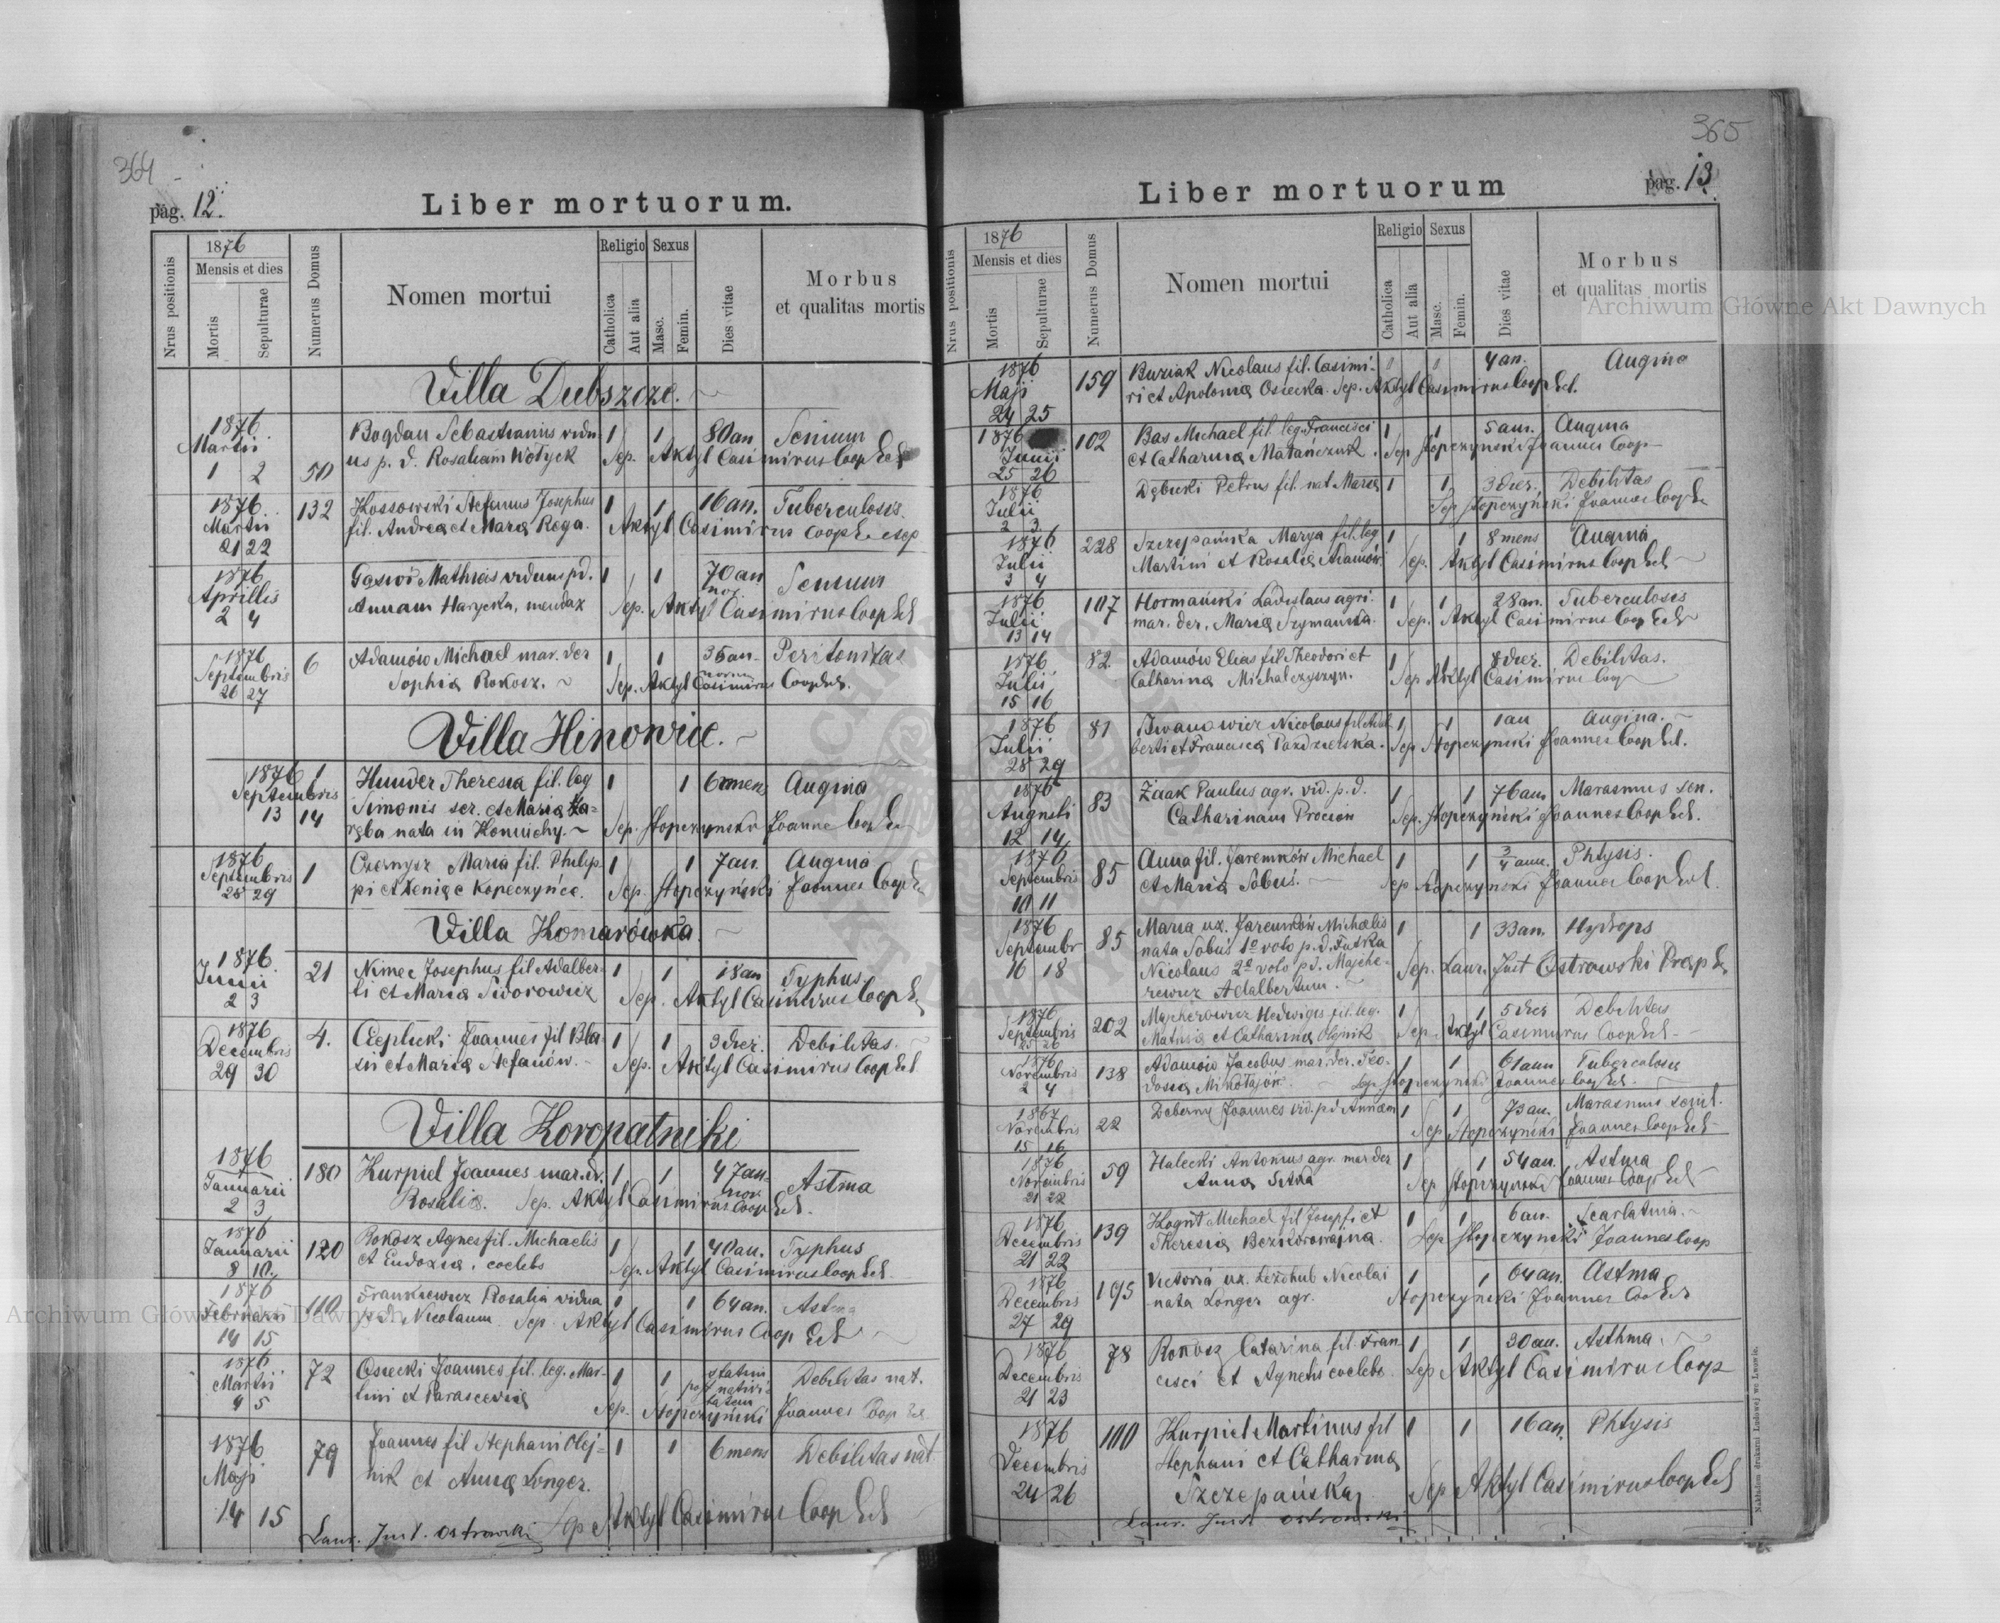 364
pag. 12.
Liber mortuorum.
Nrus positionis
1876
Mensis et dies
Mortis
Sepulturae
Numerus Domus
Nomen mortui
Religio
Catholica
Aut alia
Sexus
Masc.
Femin.
Dies vitae
Morbus
et qualitas mortis
Villa Dubszcze.
1876 Martii 1 2 50 Bogdan Sebastianus vidu 1 1 80 an Senium
us p. d. Rosaliam Wołyck Sep. Aktyl Casimirus Coop Ecl
1876 Martii 21 22 132 Kossowski Stefanus Josephus 1 1 16 an. Tuberculosis
fil. Andrea et Maria Rega. Aktyl Casimirus Coop
1876 Aprilis 2 4 Mathias viduus p d. 1 1 70 an Senium
Annam Harycka, mendax Sep. Aktyl Casimirus Coop Ecl
1876 Septembris 26 27 6 Adamów Michael mar. der 1 1 35 an. Peritonitas
Sophia Rokosz. Sep. Aktyl Casimirus Coop Ecl.
Villa Hinowice.
1876 Septembris 13 14 1 Hunder Theresia fil. leg 1 1 6 mens Augina
Simonis ser. et Maria Za-
ręba nata in Konuichy. Sep. Stopczynski Joannes Coop Ecl
1876 Septembris 28 29 1 Czernysz Maria fil. Philip 1 1 7 an. Augina
pi et Xenia Kopeczyńce. Sep. Stopczyński Joannes Coop Ecl
Villa Komarówka.
1876 Junii 2 3 21 Nimec Josephus fil Adalber- 1 1 18 an Typhus.
ti et Maria Sidorowicz Sep. Aktyl Casimirus Coop Ecl
1876 Decembris 29 30 4. Cieplicki Joannes fil Bla- 1 1 3 dier. Debilitas.
sii et Maria Stefanów. Sep. Aktyl Casimirus Coop Ecl
Villa Koropatniki
1876 Januarii 2 3 180 Kurpiel Joannes mar. dr. 1 1 47 an Astma
Rosalia. Sep. Aktyl Casimirus Coop Ecl.
1876 Januarii 8 10 120 Rokosz Agnes fil. Michaelis 1 1 40 an. Typhus
et Eudoxia, coelebs Sep. Aktyl Casimirus Coop Ecl.
1876 Februarii 14 15 110 Frankiewicz Rosalia vidua 1 1 64 an. Astma
p. d. Nicolaum. Sep. Aktyl Casimirus Coop Ecl
1876 Martii 4 5 72 Osiecki Joannes fil. leg. Mar- 1 1 statim post nativitatem Debilitas nat.
tini et Parascevia Sep. Stopczyński Joannes Coop Ecl
1876 Maji 14 15 79 Joannes fil Stephani Olej- 1 1 6 mens Debilitas nat.
nik et Anna Longer.
Sep Aktyl Casimirus Coop Ecl
Laur. Just. Ostrowski
365
pag. 13.
Liber mortuorum
Nrus positionis
1876
Mensis et dies
Mortis
Sepulturae
Numerus Domus
Nomen mortui
Religio
Catholica
Aut alia
Sexus
Masc.
Femin.
Dies vitae
Morbus
et qualitas mortis
1876 Maji 24 25 159 Buziak Nicolaus fil. Casimi- 1 1 4 an. Augina
ri et Apolonia Osiecka. Sep. Aktyl Casimirus Coop Ecl.
1876 Junii 25 26 102 Bas Michael fil leg. Francisci 1 1 5 ann. Augina
et Catharina Matańczuk. Sep Stopczynski Joannes Coop
1876 Julii 2 3 Dębicki Petrus fil. nat Maria 1 1 3 dier. Debilitas
Sep Stopczyński Joannes Coop Ec
1876 Julii 3 4 228 Szczepańska Marya fil. leg 1 1 8 mens Augina
Martini et Rosalia Adamów Sep. Aktyl Casimirus Coop Ecl
1876 Julii 13 14 107 Hormański Ladislaus agri. 1 1 28 an. Tuberculosis
mar. der. Maria Szymańska. Sep. Aktyl Casimirus Coop Ecl
1876 Julii 15 16 82. Adamów Elias fil Theodori et 1 1 8 dier. Debilitas.
Catharina Michalczyszyn. Sep Aktyl Casimirus Coop
1876 Julii 28 29 81 Iwanowicz Nicolaus fil Adal 1 1 1 an Augina.
berti et Francisca Pazdzierska. Sep. Stopczynski Joannes Coop Ecl.
1876 Augusti 12 14 83 Żaak Paulus agr. vid. p. d. 1 1 76 ann Marasmus sen.
Catharinam Procion Sep. Stopczyński Joannes Coop Ecl.
1876 Septembris 10 11 85 Anna fil. Jaremków Michael 1 1 3/4 ann. Phtysis.
et Maria Sobuś. Sep Stopczynski Joannes Coop Ecl.
1876 Septembr 16 18 85 Maria ux. Jaremków Michaelis 1 1 33 an. Hydrops
nata Sobuś 1o voto p. d. Futska
Nicolaus 2o voto p d. Majche- Sep. Laur. Just Ostrowski Praep Ec
rewicz Adalbertum.
1876 Septembris 25 26 202 Majcherowicz Hedwiges fil. leg. 1 1 5 dier Debilitas
Mathia et Catharina Olejnik Sep. Aktyl Casimirus Coop Ecl
1876 Novembris 2 4 138 Adamów Jacobus mar. der. Teo- 1 1 61 ann Tuberculosis
dosia Mikołajów. Sep. Stopczynski Joannes Coop Ecl.
1867 Novembris 15 16 22 Deberny Joannes vid. p d Annam 1 1 73 an. Marasmus senil.
Sep Stopczyński Joannes Coop Ecl
1876 Novembris 21 22 59 Halecki Antonius agr. mar der 1 1 54 an. Astma
Anna Sitka Sep Stopczynski Joannes Coop Ecl
1876 Decembris 21 22 139 Kogut Michael fil Josepfi et 1 1 6 an. Scarlatina.
Theresia Bezkorowajna. Sep Stopczynski Joannes Coop
1876 Decembris 27 29 195 Victoria ux. Leżohub Nicolai 1 1 64 an. Astma
nata Longer agr. Stopczynski Joannes Coo Ecl
1876 Decembris 21 23 78 Rokosz Catarina fil. Fran 1 1 30 an. Asthma.
cisci et Agnetis coelebs Sep Aktyl Casimirus Coop
1876 Decembris 24 26 110 Kurpiel Martinus fil 1 1 16 an. Phtysis
Stephani et Catharina
Szczepańska Sep Aktyl Casimirus Coop Ecl
Laur. Just Ostrowski
Nakładem drukarni Ludowej we Lwowie.
Archiwum Główne Akt Dawnych
Archiwum Główne Akt Dawnych